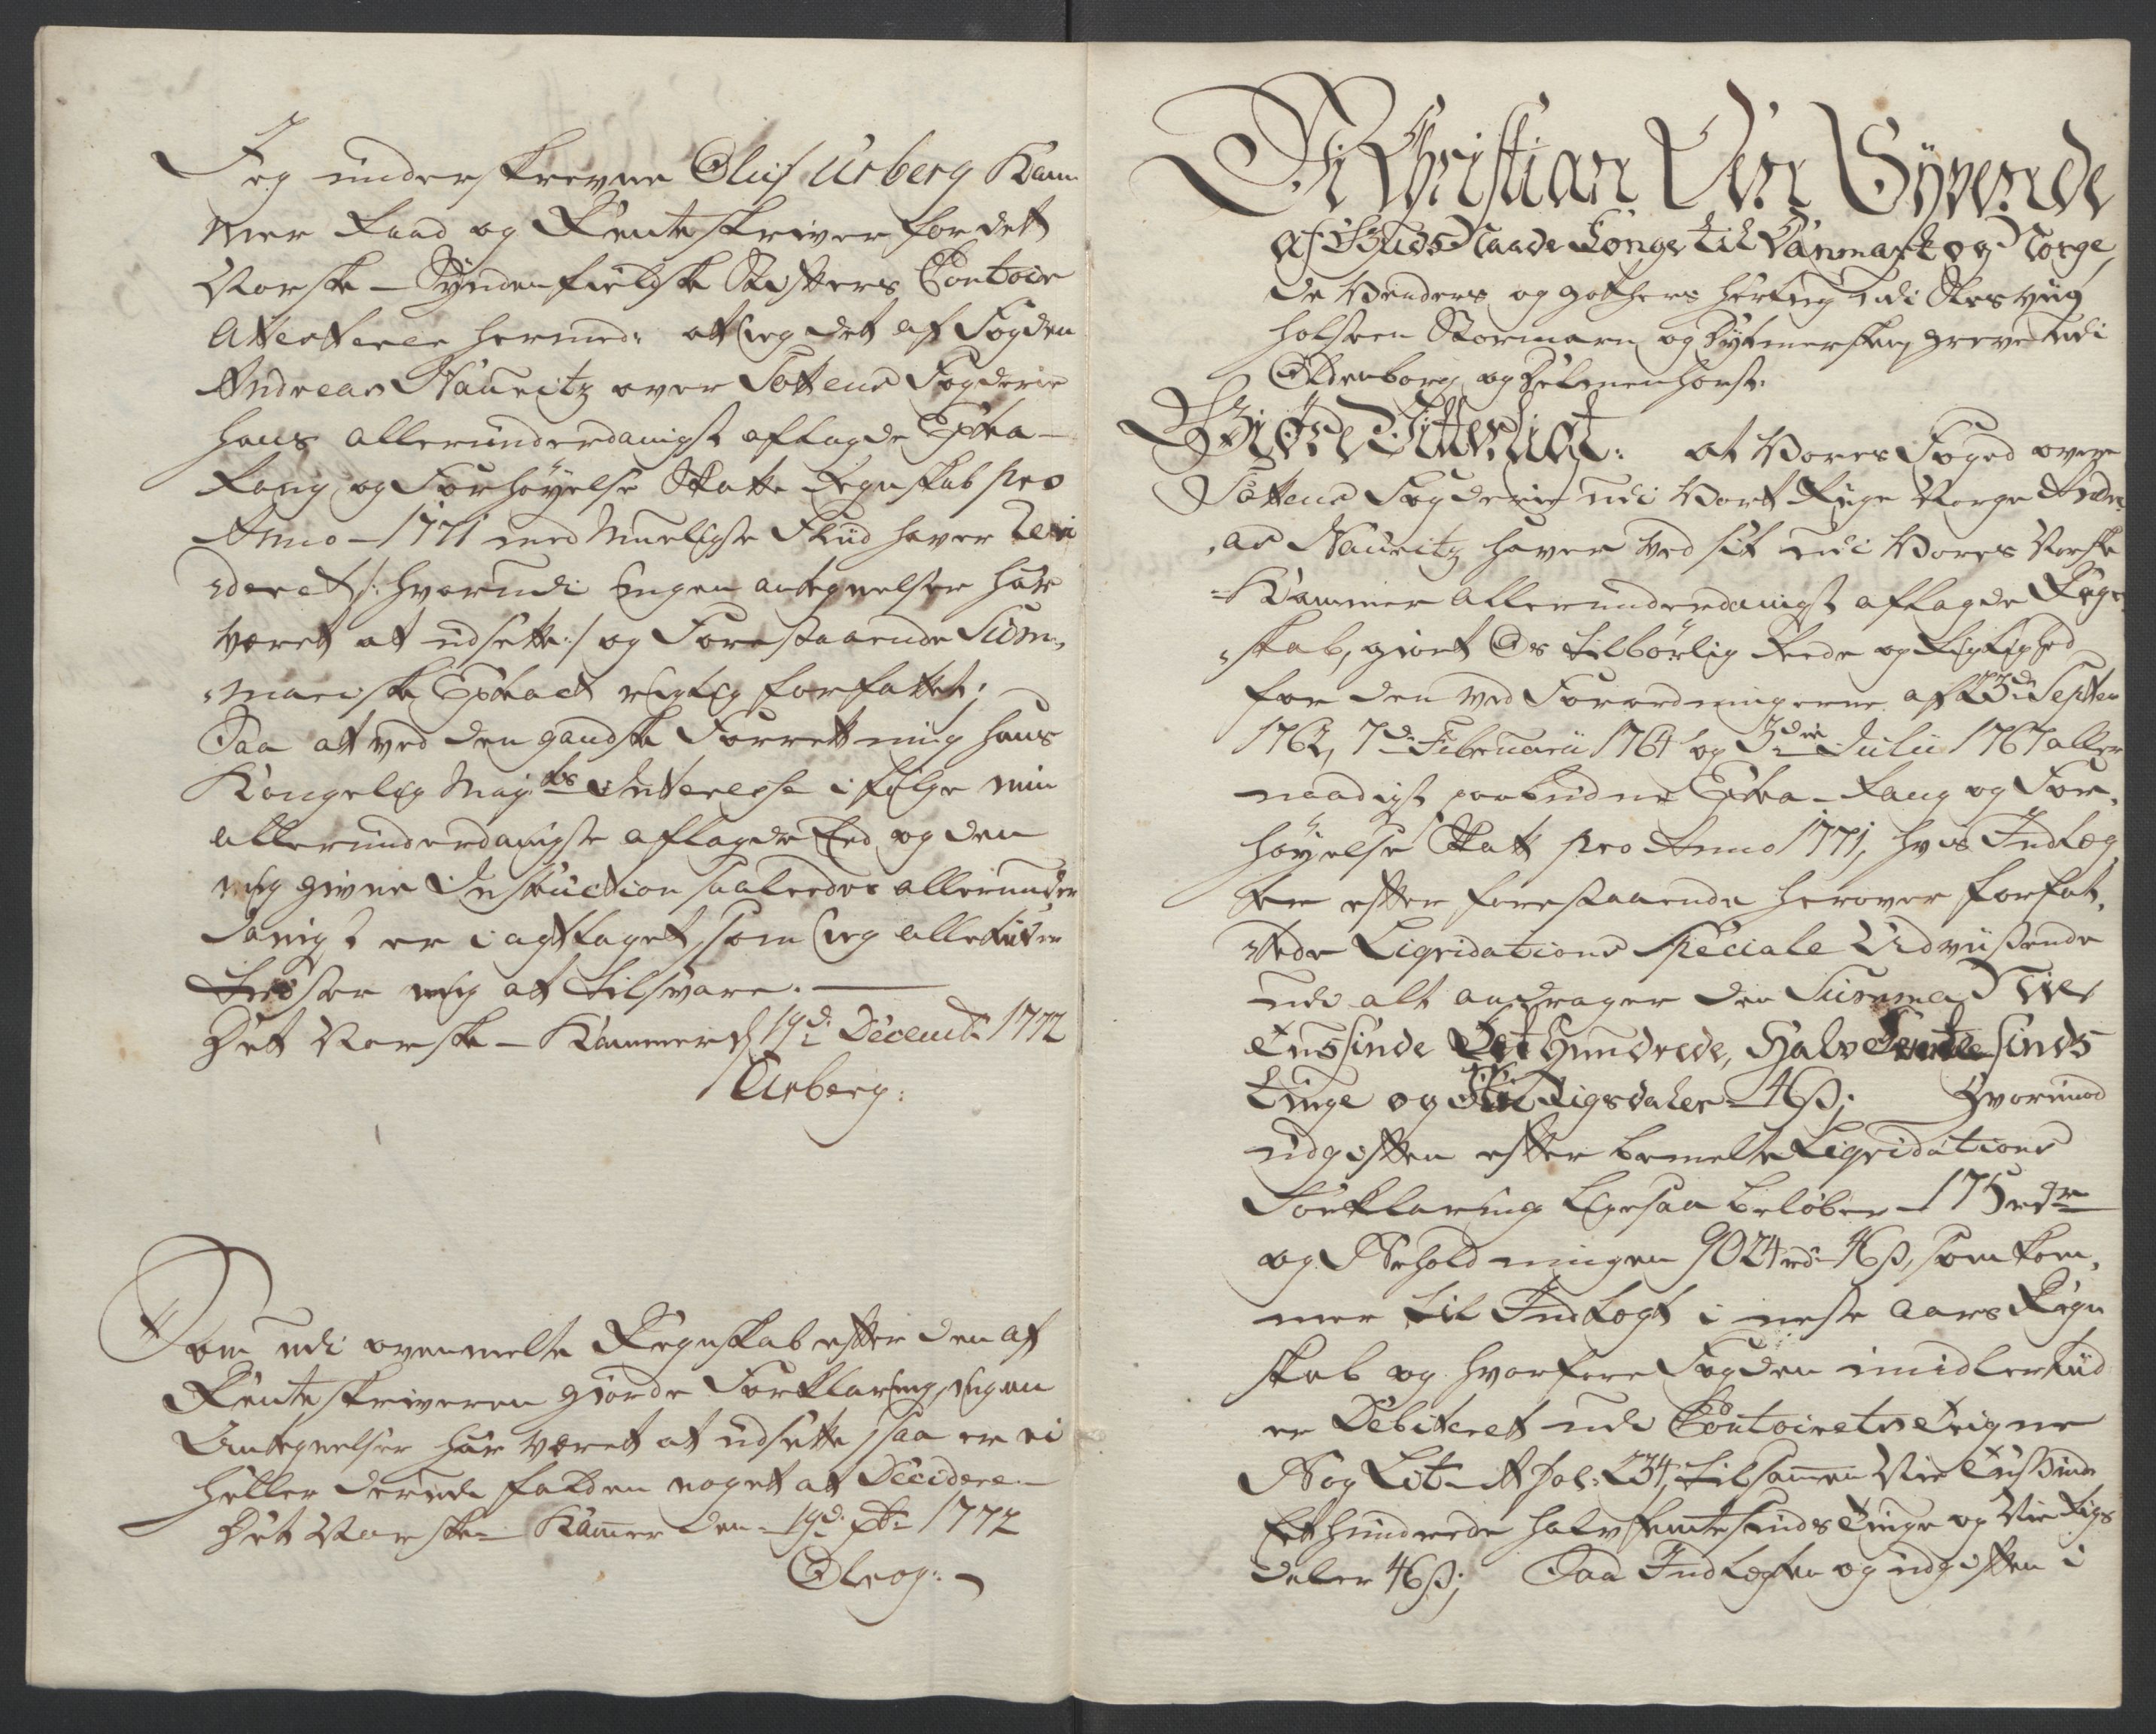 Jeg underskrevne Oluf Urberg Kam
mer Raad og Renteskriver for det
Norske – Syndenfieldske Stifters Contoir
Attesterer hermed: at jeg det af Fogden
Andreas Nauritz over Tottens Fogderie
hans allerunderdanigst aflagde Extra –
Rang og Forhøyelse Skatte Regnskab pro
Anno – 1771 med mueligste Fliid haver Revi
deret /: hvorudi Ingen antegnelser har
været at udsette :/ og Forestaaende Sum,
mariske Extract rigtig forfattet;
Saa at ved den gandske Forretning hans
Kongelig May:ts Interesse i følge min
allerunderdanigste aflagde Eed og den
mig givne Instruction saaledes allerunder
danigst er i agttaget, som jeg alletider
trøster mig at tilsvare. –
Det Norske – Kammer d 19de Decemb: 1772
Urberg:
Som udi ovenmelte Regnskab efter den af
Renteskriveren giorde Forklaring, ingen
Antegnelser har været at udsette, saa er ei
heller derudi falden noget at Decidere –
Det Norske – Kammer den – 19de xbr 1772

Vi Christian Den Syvende
af Guds Naade Konge til Danmark og Norge,
de Venders og Gothers Hertug udi Slesvig
Holsteen Stormarn og Dytmersken, Greve udi
Oldenborg og Delmenhorst:
Giøre Vitterligt: at Vores Foged over
Tottens Fogderie udi Vort Rige Norge Andre,
,as Nauritz haver ved sit udi Vores Norske
= Kammer allerunderdanigst aflagde Regn
,skab, giort Os tilbørlig Rede og Rigtighed
for den ved Forordningerne af 23de Septem
1762, 7de Februarii 1764 og 3die Julii 1767 aller
naadigst paabudne Extra – Rang og For,
høyelse Skatt pro Anno 1771, hvis Indtæg
ter efter forestaaende herover forfat,
tede Liqvidations Speciale Udviisende
udi alt andrager den Summa Nie
Tussinde Et Hundrede, Halvfemte sinds
Tiuge og Nie Rigsdaler – 46 ß; Hvorimod
udgiften efter bemelte Liqvidations
Forklaring ligesaa beløber – 175 rdr
og Beholdningen 9024 rd: 46 ß, som kom,
mer til Indtægt i neste Aars Regn
skab og hvorfore Fogden imidlertiid
er Debiteret udi Contoirets Eigne
Bog Lit – A Fol: 234, tilsammen Nie Tussinde
Et hundrede halvfemtesinds Tiuge og Nie Rigs
daler 46 ß; Saa Indtægten og udgiften i